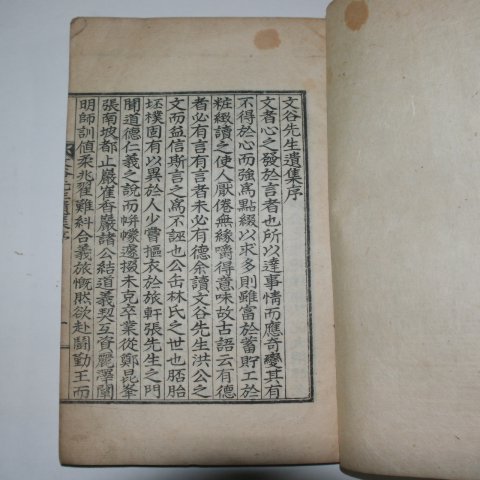 文谷先生遺集序
文者心之發於言者也所以達事情而應奇變其有
不得於心而強爲點綴以求多則雖富於蓄貯工於
粧緻讀之使人厭倦無緣嚼得意味故古語云有德
者必有言有言者未必有德余讀文谷先生洪公之
文而益信斯言之爲不誣也公缶林氏之世也胚胎
坯樸固有以異於人少嘗摳衣於旅軒張先生之門
聞道德仁義之說而帡幪遽掇未克卒業從鄭昆峯
張南坡都止巖崔香巖諸公結道義契互資麗澤闡
明師訓値柔兆翟難糾合義旅慨然欲赴鬪勤王而
文谷先生遺集序